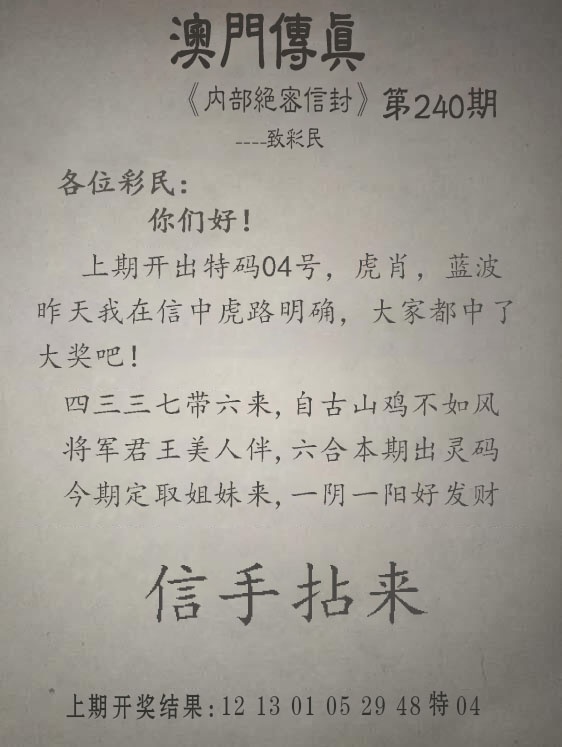 澳門傳真
《内部絕密信封》第240期
----致彩民
各位彩民:
你们好!
上期开出特码04号，虎肖，蓝波
昨天我在信中虎路明确，大家都中了
大奖吧!
四三三七带六来,自古山鸡不如风
将军君王美人伴,六合本期出灵码
今期定取姐妹来,一阴一阳好发财
信手拈来
上期开奖结果:12 13 01 05 29 48 特 04